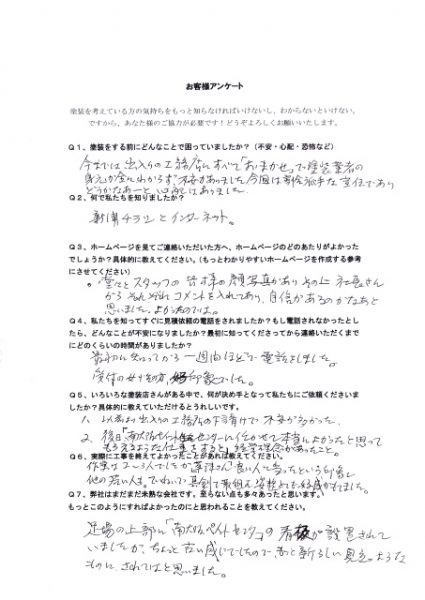 お客様アンケート
塗装を考えている方の気持ちをもっと知らなければいけないし、わからないといけない。
ですから、あなた様のご協力が必要です！どうぞよろしくお願いいたします。
Q１、塗装をする前にどんなことで困っていましたか？（不安・心配・恐怖など）
今までは出入りの工務店にすべて「おまかせ」で塗装業者の
身元が全くわからず、不安がありました。今回は
どうかなあーと心配はありました。
Q２、何で私たちを知りましたか？
新聞チラシとインターネット。
Q３、ホームページを見てご連絡いただいた方へ、ホームページのどのあたりがよかった
でしょうか？具体的に教えてください。（もっとわかりやすいホームページを作成する参考
にさせてください）
スタッフの皆様の顔写真があり その上 社長さん
から それぞれ コメントを入れてあり、自信があるのかなあと
思いました。
Q４、私たちを知ってすぐに見積依頼の電話をされましたか？もし電話されなかったとし
たら、どんなことが不安になりましたか？最初に知ってくださってから連絡いただくまで
にどのくらいの時間がありましたか？
最初に知ってから一週間ほどで電話をしました。
受付の女性の方、好印象でした。
Q５、いろいろな塗装店さんがある中で、何が決め手となって私たちにご依頼くださいま
したか？具体的に教えていただけるとうれしいです。
1、以前より出入りの工務店の下請けで不安が多かった。
2、後日「南大阪ペイントセンターに任かせて本当によかったと思って
もらえるような仕事をする」と経営理念があったこと。
Q６、実際に工事を終えてよかったことがあれば教えてください。
作業は2〜3人でしたが
他の若い人も
Q７、弊社はまだまだ未熟な会社です。至らない点も多々あったと思います。
もっとこのようにすればよかったのにと思われることを教えてください。
足場の上部に「南大阪ペイントセンター」の看板が設置されて
いましたが、ちょっと古い感じでしたので、もっと新しい見立つような
ものに、されてはと思いました。